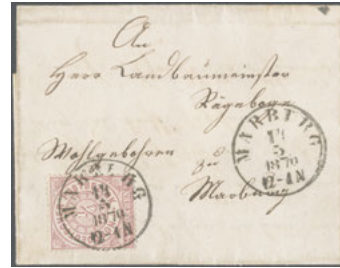 An
Herr Landbaumeister
Rügeberg
Wohlgebohren
zu
Marburg
MARBURG
14
5
1870
12-1N
MARBURG
14
5
1870
12-1N